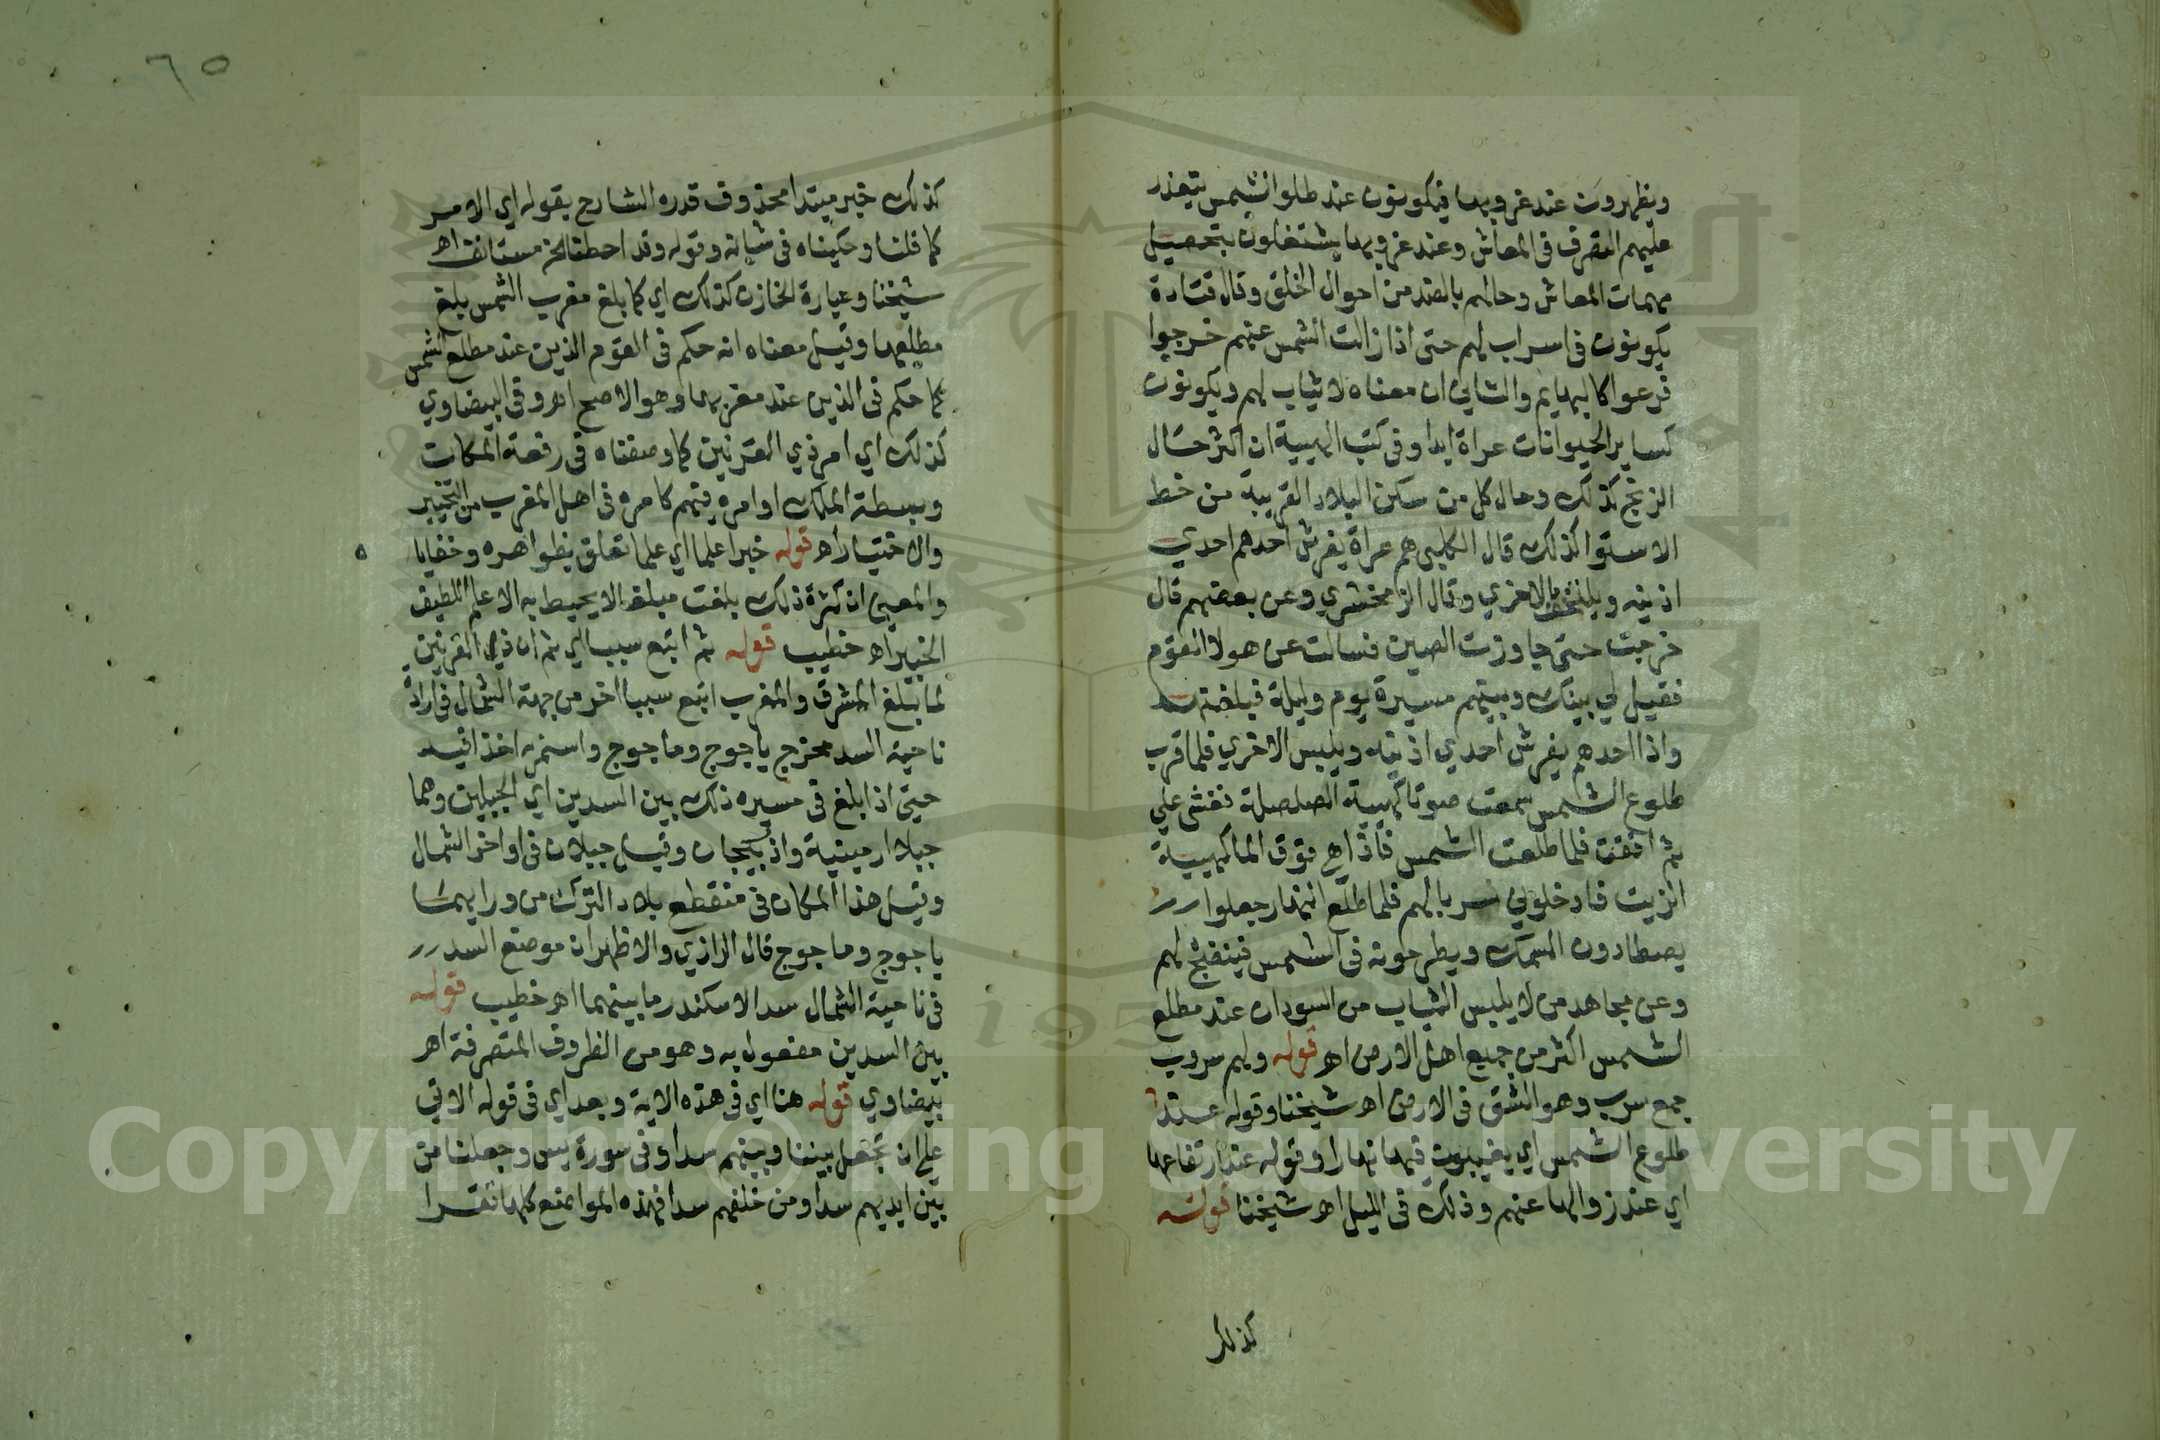 ويظهرون عند غروبها فيكونون عند طلوع الشمس يتعذر
عليهم التصرف في المعاش وعند غروبها يشتغلون بتحصيل
مهمات المعاش وحالهم بالضد من احوال الخلق وقال قتادة
يكونون في اسراب لهم حتى اذا زالت الشمس عنهم خرجوا
فرعوا كالبهايم والثاني ان معناه لا ثياب لهم ويكونون
كساير الحيوانات عراة ابدا وفي كتب الهيية ان اكثر حال
الزنج كذلك وحال كل من سكن البلاد القريبة من خط
الاستوا كذلك قال الكلبي هم عراة يفرش احدهم احدي
اذنيه ويلتحف بالاخري وقال الزمخشري وعن بعضهم قال
خرجت حتى جاوزت الصين فسالت عن هولا القوم
فقيل لي بينك وبينهم مسيرة يوم وليلة فبلغتهم
واذا احدهم يفرش احدي اذنيه ويلبس الاخري فلما قرب
طلوع الشمس سمعت صوتا كهيية الصلصلة فغشي علي
ثم افقت فلما طلعت الشمس فاذا هي فوق الما كهيية
الزيت فادخلوني سربا لهم فلما طلع النهار جعلوا
يصطادون السمك ويطرحونه في الشمس فينضج لهم
وعن مجاهد من لا يلبس الثياب من السودان عند مطلع
الشمس اكثر من جميع اهل الارض اهـ قوله ولهم سروب
جمع سرب وهو الشق في الارض اهـ شيخنا وقوله عند
طلوع الشمس اي يغيبون فيها نهارا وقوله عند ارتفاعها
اي عند زوالها عنهم وذلك في الليل اهـ شيخنا قوله
كذلك
٦٥
كذلك خبر مبتدا محذوف قدره الشارح بقوله اي الامر
كما قلنا وحكيناه في شانه وقوله وقد احطنا الخ مستانف اهـ
شيخنا وعبارة الخازن كذلك اي كما بلغ مغرب الشمس بلغ
مطلعها وقيل معناه انه حكم في القوم الذين عند مطلع الشمس
كما حكم في الذين عند مغربها وهو الاصح اهـ وفي البيضاوي
كذلك اي امر ذي القرنين كما وصفناه في رفعة المكان
وبسطة الملك او امره فيهم كامره في اهل المغرب من التخيير
والاختيار اهـ قوله خبرا علما اي علما تعلق بظواهره وخفايا
والمعني ان كثرة ذلك بلغت مبلغا لا يحيط به الا علم اللطيف
الخبير اهـ خطيب قوله ثم اتبع سببا اي ثم ان ذي القرنين
لما بلغ المشرق والمغرب اتبع سببا اخر من جهة الشمال في ارادة
ناحية السد مخرج ياجوج وماجوج واستمر اخذا فيه
حتى اذا بلغ في مسيره ذلك بين السدين اي الجبلين وهما
جبلا ارمينية واذربيجان وقيل جبلان في اواخر الشمال
وقيل هذا المكان في منقطع بلاد الترك من ورايهما
ياجوج وماجوج قال الرازي والاظهر ان موضع السد
في ناحية الشمال سد الاسكندر ما بينهما اهـ خطيب قوله
بين السدين مفعول به وهو من الظروف المتصرفة اهـ
بيضاوي قوله هنا اي في هذه الاية وبعد اي في قوله الاتي
على ان تجعل بيننا وبينهم سدا وفي سورة يس وجعلنا من
بين ايديهم سدا ومن خلفهم سدا فهذه المواضع كلها تقرا
Copyright © King Saud University
195